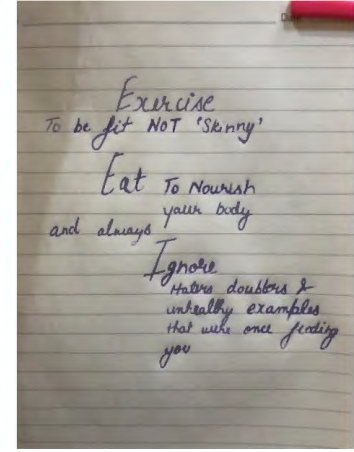 Date
Exercise
To be fit NOT 'Skinny'
Eat To Nourish
your body
and always
Ignore
Haters doubters &
unhealthy examples
that were once feeding
you